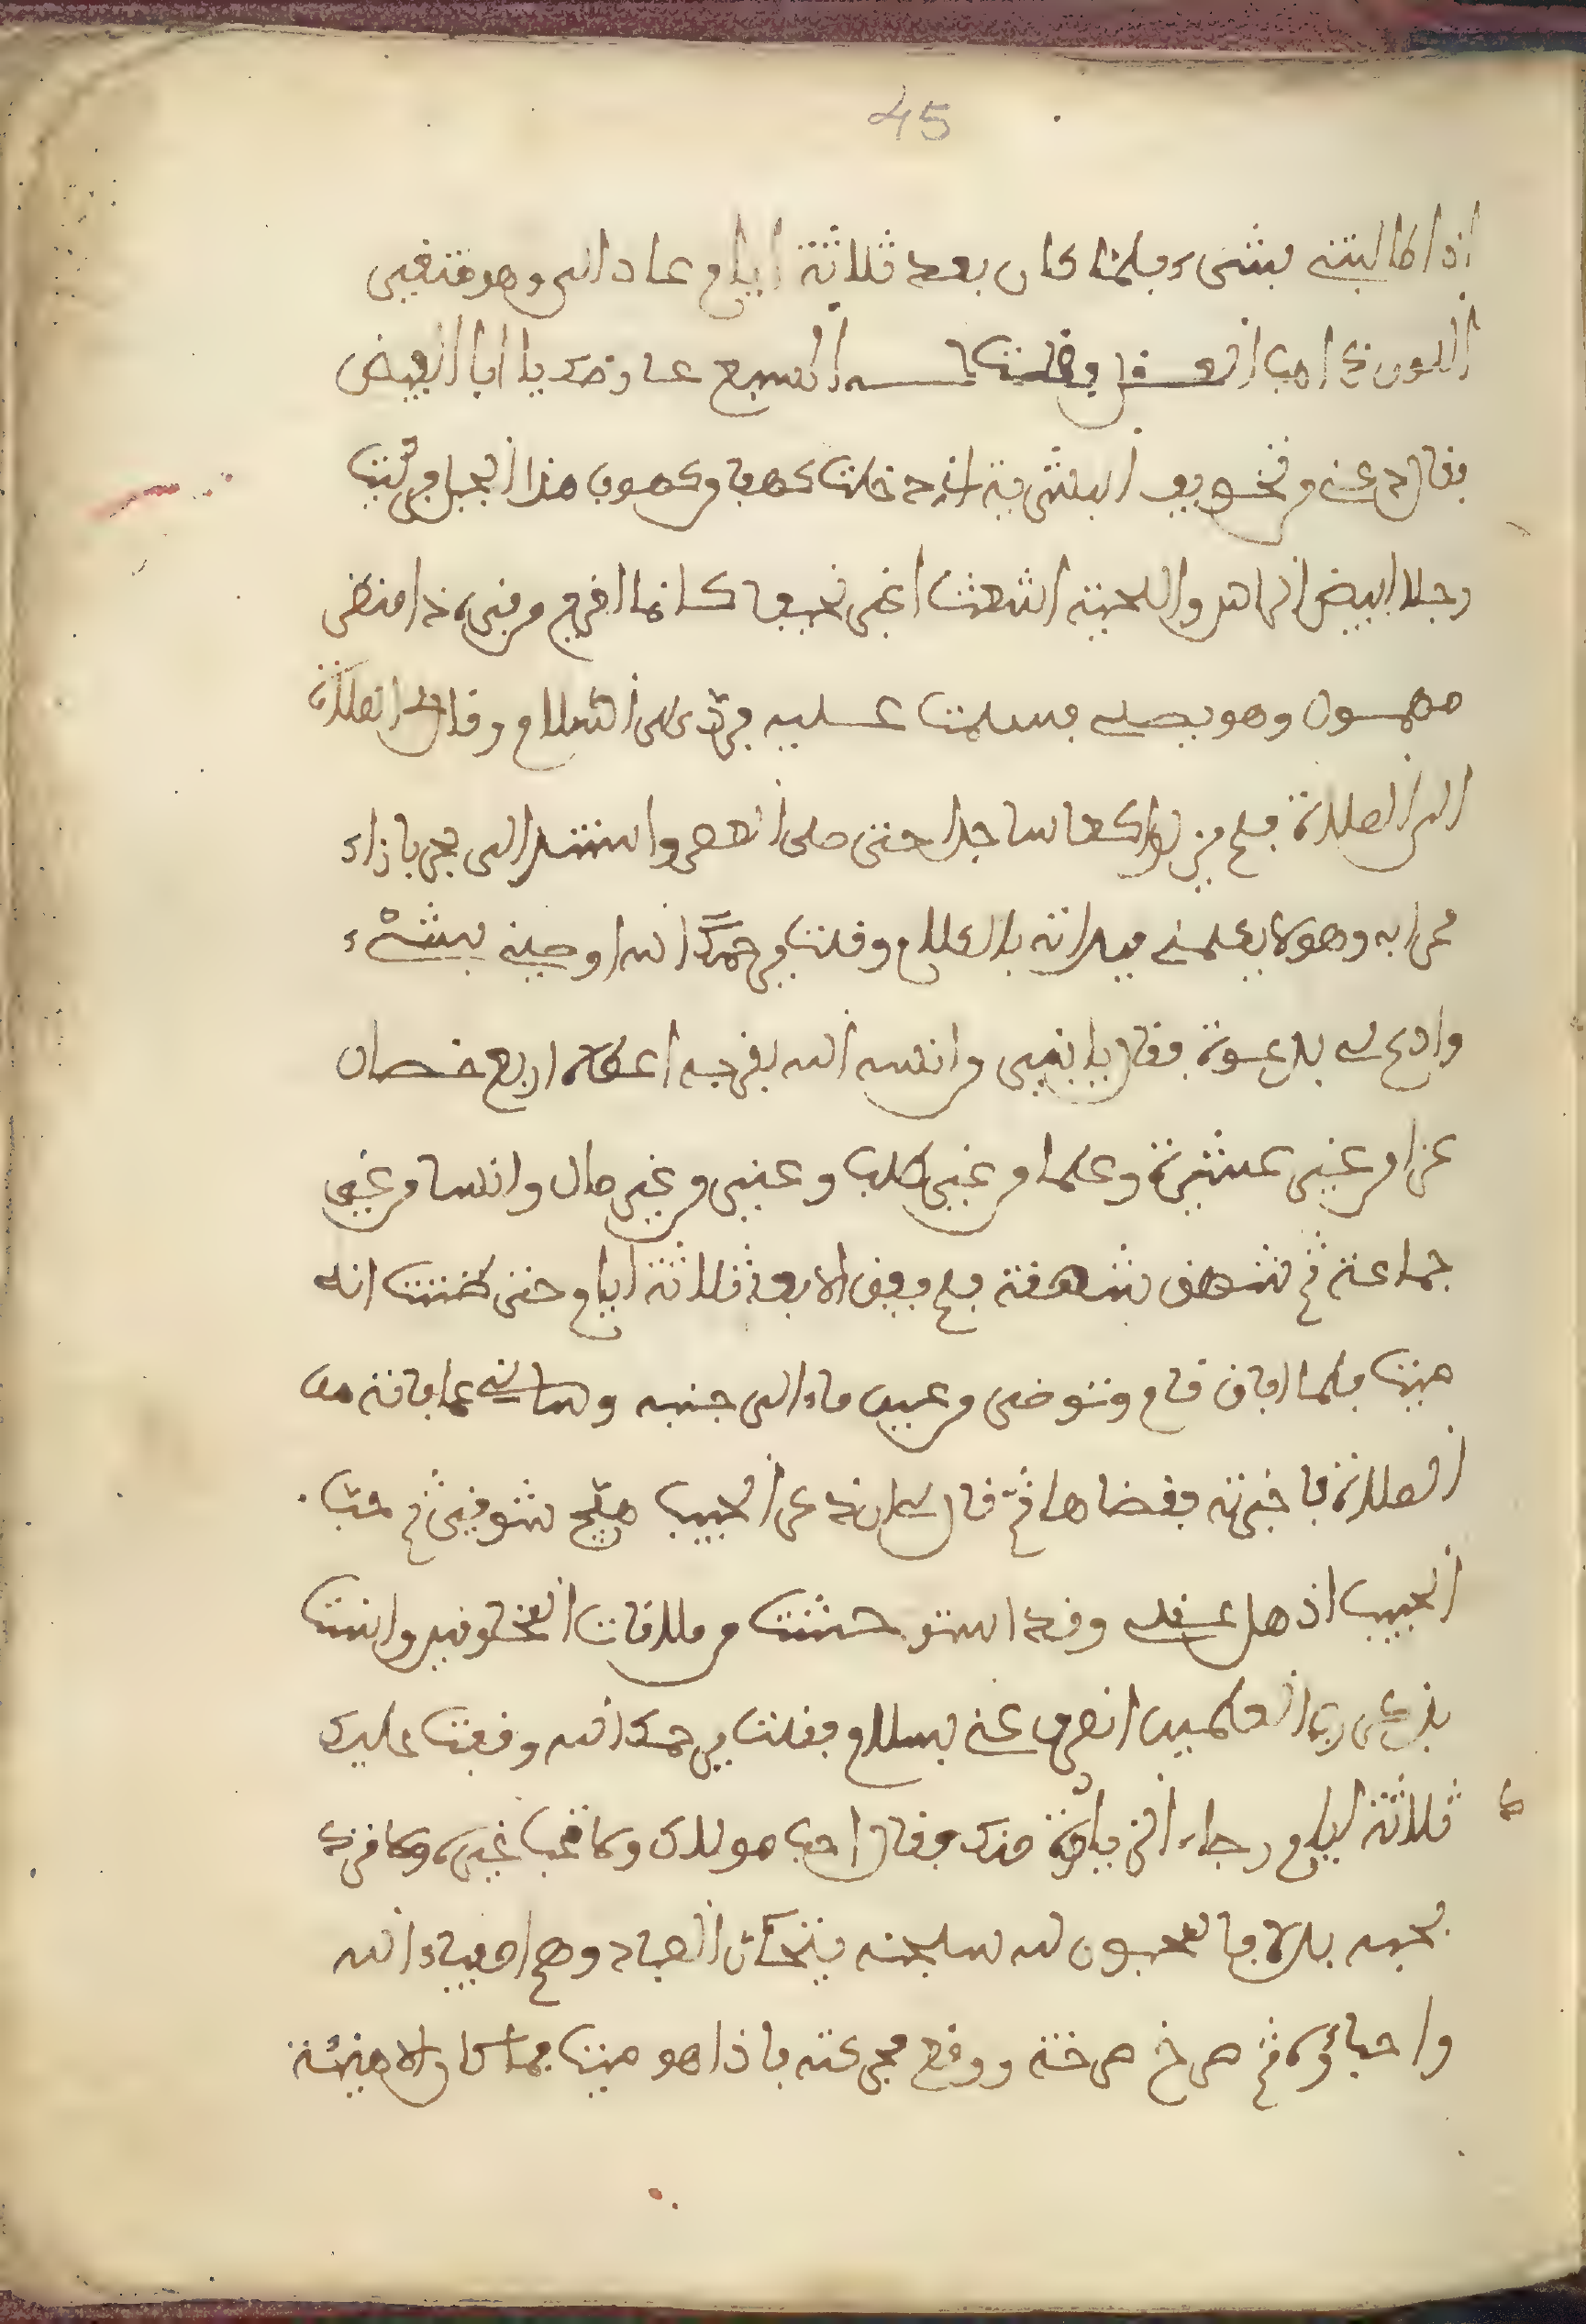 45
اذا طالبته بشيء فلما كان بعد ثلاثة ايام عاد الي وهو متغير
اللون ذاهب العقل وقلت له السبع عارضك يا ابا الفيض
فقال دعني من تخويف البشرية اني دخلت كهفا من كهوف هذا الجبل فرايت
رجلا ابيض الراس واللحية اشعث اغبر نحيفا كانما اخرج من قبره ذا منظر
مهول وهو يصلي فسلمت عليه فرد علي السلام وقال لي الصلاة
الى الصلاة فلم يزل راكعا ساجدا حتى صلى العصر واستند الى حجر بازاء
محرابه وهو لا يكلمني فبداته بالكلام وقلت يرحمك الله اوصيني بشيء
وادع لي بدعوة فقال يا بني من انسه الله بقربه اعطاه اربع خصال
عزا من غير عشيرة وعلما من غير طلب وغنى من غير مال وانسا من غير
جماعة ثم شهق شهقة فلم يفق الا بعد ثلاثة ايام حتى ظننت انه
ميت فلما افاق قام وتوضى من عين ماء الى جنبه وسالني عما فاته من
الصلاة فاخبرته فقضاها ثم قال لي ان ذكر الحبيب هيج شوقي ثم حب
الحبيب اذهل عقلي وقد استوحشت من ملاقات المخلوقين وانست
بذكر رب العلمين انصرف عني بسلام فقلت يرحمك الله وقفت عليك
ثلاثة ايام رجاء الزيادة منك فقال احب مولاك ولا تحب غيره ولا ترد
بحبه بدلا فالمحبون لله سبحنه تيجان العباد وهم اصفياء الله
واحباؤه ثم صرخ صرخة ووقع فحركته فاذا هو ميت فما كان الا هنيئة